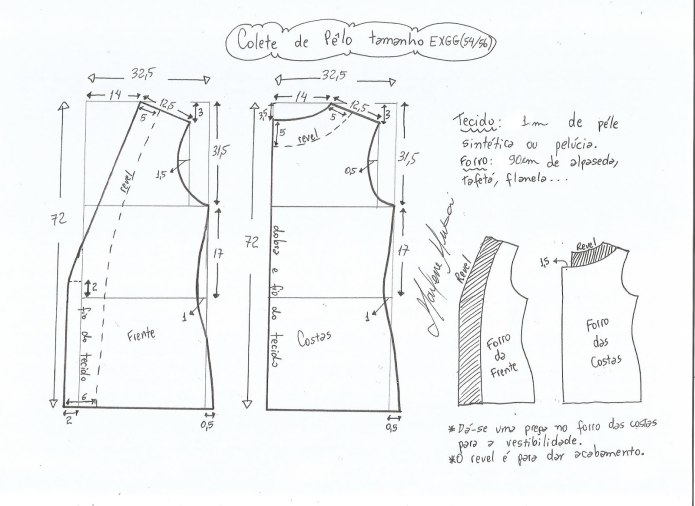 Colete de Pêlo tamanho EXGG(54/56)
32,5
14
12,5
3
5
revel
1,5
31,5
72
17
2
1
fio do tecido
Frente
6
2
0,5
32,5
14
12,5
3
1,5
5
5
revel
0,5
31,5
72
17
1
dobra e fio do tecido
Costas
0,5
Tecido: 1m de pêle
sintética ou pelúcia.
Forro: 90cm de alpaseda,
tafetá, flanela...
Marlene Mukai
Revel
Forro
da
Frente
Revel
1,5
Forro
das
Costas
*Dá-se uma prega no forro das costas
para a vestibilidade.
*O revel é para dar acabamento.